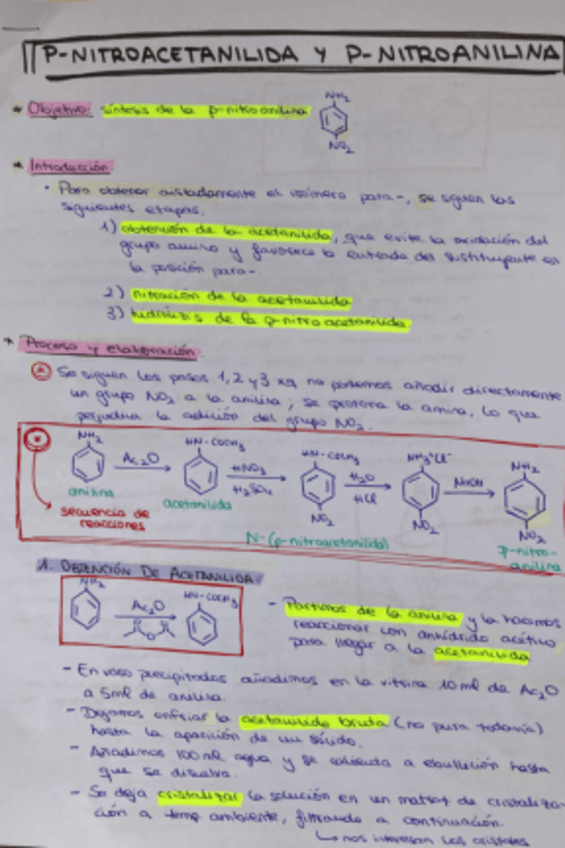 P-NITROACETANILIDA Y P-NITROANILINA
* Objetivo: síntesis de la p-nitroanilina
NH2
NO2
* Introducción:
· Para obtener aisladamente el isómero para-, se siguen las
siguientes etapas:
1) obtención de la acetanilida, que evite la oxidación del
grupo amino y favorece la entrada del sustituyente en
la posición para-.
2) nitración de la acetanilida
3) hidrólisis de la p-nitro acetanilida.
* Proceso y elaboración
* Se siguen los pasos 1, 2 y 3 xq no podemos añadir directamente
un grupo NO2 a la anilina; se protona la amina, lo que
perjudica la adición del grupo NO2.
NH2 Ac2O HN-COCH3 HNO3 H2SO4 HN-COCH3 H2O HCl NH3+Cl- NaOH NH2
NO2 NO2 NO2
anilina acetanilida N-(p-nitroacetanilida) p-nitro-
anilina
secuencia de
reacciones
1. OBTENCIÓN DE ACETANILIDA:
NH2 Ac2O HN-COCH3
- Partimos de la anilina y la hacemos
reaccionar con anhídrido acético
para llegar a la acetanilida
- En vaso precipitados añadimos en la vitrina 10 ml de Ac2O
a 5ml de anilina.
- Dejamos enfriar la acetanilida bruta (no pura todavía)
hasta la aparición de un sólido.
- Añadimos 100 ml agua y se calienta a ebullición hasta
que se disuelva.
- Se deja cristalizar la solución en un matraz de cristaliza-
ción a temp ambiente, filtrando a continuación.
nos interesan los cristales